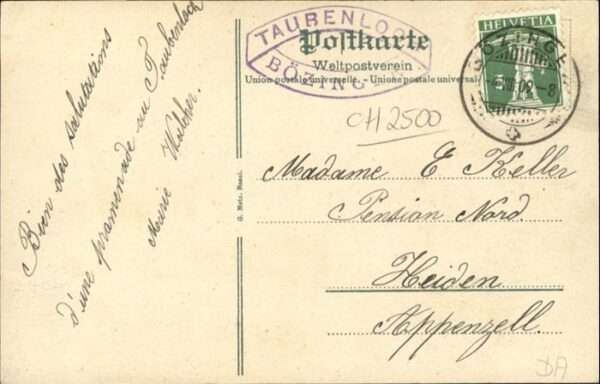 Bien des salutations
d'une promenade au Taubenloch
Walcher.
G. Metz, Basel.
TAUBENLOC
BÖZING
Postkarte
Weltpostverein
Union postale universelle. - Unione postale universal
HELVETIA
5
BÖZINGEN
09.-8
CH 2500
Madame E Keller
Pension Nord.
Heiden
Appenzell.